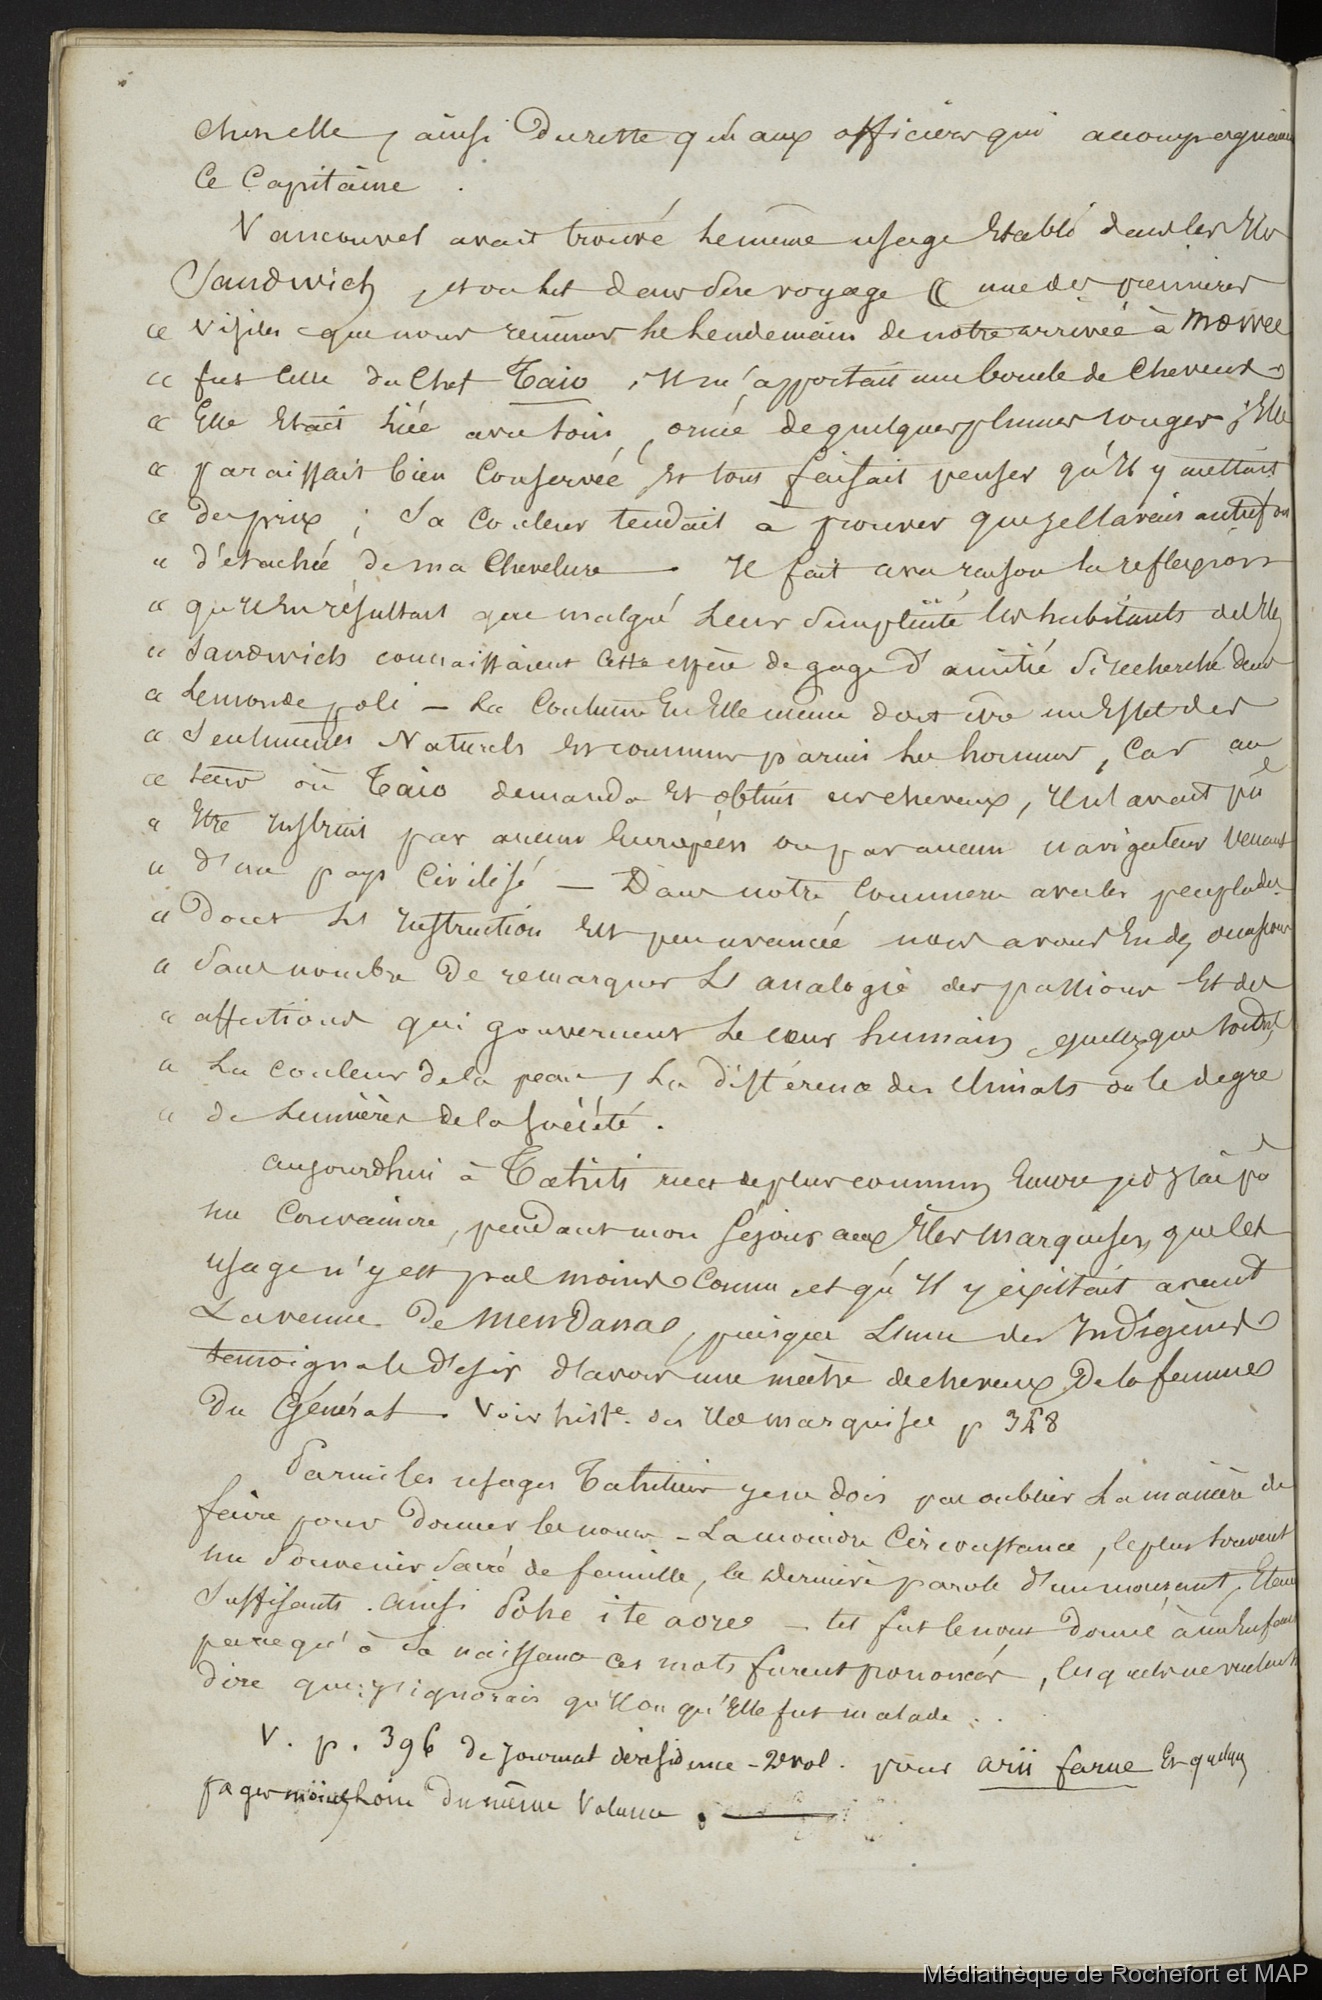 chevelle, ainsi du reste qu'aux officiers qui accompagnaient
le Capitaine.
Vancouver avait trouvé le même usage Etabli dans les Iles
Sandwich, et on lit dans Son voyage « une des premieres
« visites que nous reçumes le lendemain de notre arrivée à Mowee
« fut celle du Chef Taio, Il m'apportait une boucle de Cheveux
« Elle Etait liée avec soin, ornée de quelques plumes rouges ; Elle
« paraissait bien Conservée et tout faisait penser qu'Il y mettait
« du prix ; Sa Couleur tendait à prouver que je l'avais autrefois
« détachée de ma Chevelure. Il fait avec raison la reflexion
« qu'Il En résultait que malgré Leur Simplicité les habitants des Iles
« Sandwich connaissaient cette espèce de gage d'amitié Si recherché dans
« Le monde poli — La Coutume En Elle même doit être un Effet des
« Sentiments Naturels Et communs parmi les hommes, Car au
« tems où Taio demanda Et obtint ces cheveux, Il n'avait pû
« Etre Instruit par aucun Européen ou par aucun navigateur venant
« d'un pays Civilisé — Dans notre Commerce avec les peuplades
« Dont L'Instruction Est peu avancée nous avons Eu des occasions
« Sans nombre De remarquer L'analogie des passions Et des
« affections qui gouvernent Le cœur humain, quelles que soient
« La couleur de la peau, La différence des Climats ou le degré
« de Lumières de la Société.
aujourdhui à Tahiti rien de plus commun Encore, et j'ai pû
me Convaincre, pendant mon Séjour aux Iles Marquises, que cet
usage n'y est pas moins Connu, et qu'Il y existait avant
La venue De Mendana, puisque L'une des Indigènes
temoigna le désir d'avoir une mèche de cheveux De la femme
Du Général. Voir histre. des Iles marquises p 348
Parmi les usages Tahitiens je ne dois pas oublier La manière de
faire pour donner les noms — La moindre Circonstance, le plus souvent
un Souvenir Sacré de famille, la dernière parole d'un mourant, Etant
Suffisants. Ainsi Pohe ite aore — tel fut le nom Donné à un Enfant
parce qu'à Sa naissance ces mots furent prononcés, lesquels veulent
dire que j'ignorais qu'Il ou qu'Elle fut malade.
V. p. 396 de Journal de résidence - 2e vol. pour arii farue Et quelques
pages moins loin Du même Volume.
Médiathèque de Rochefort et MAP